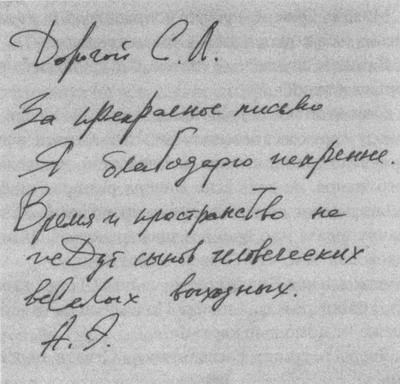 Дорогой С. А.
За прекрасное письмо
Я благодарю искренне.
Время и пространство не
сынов человеческих
веселых выходных.
А. Э.